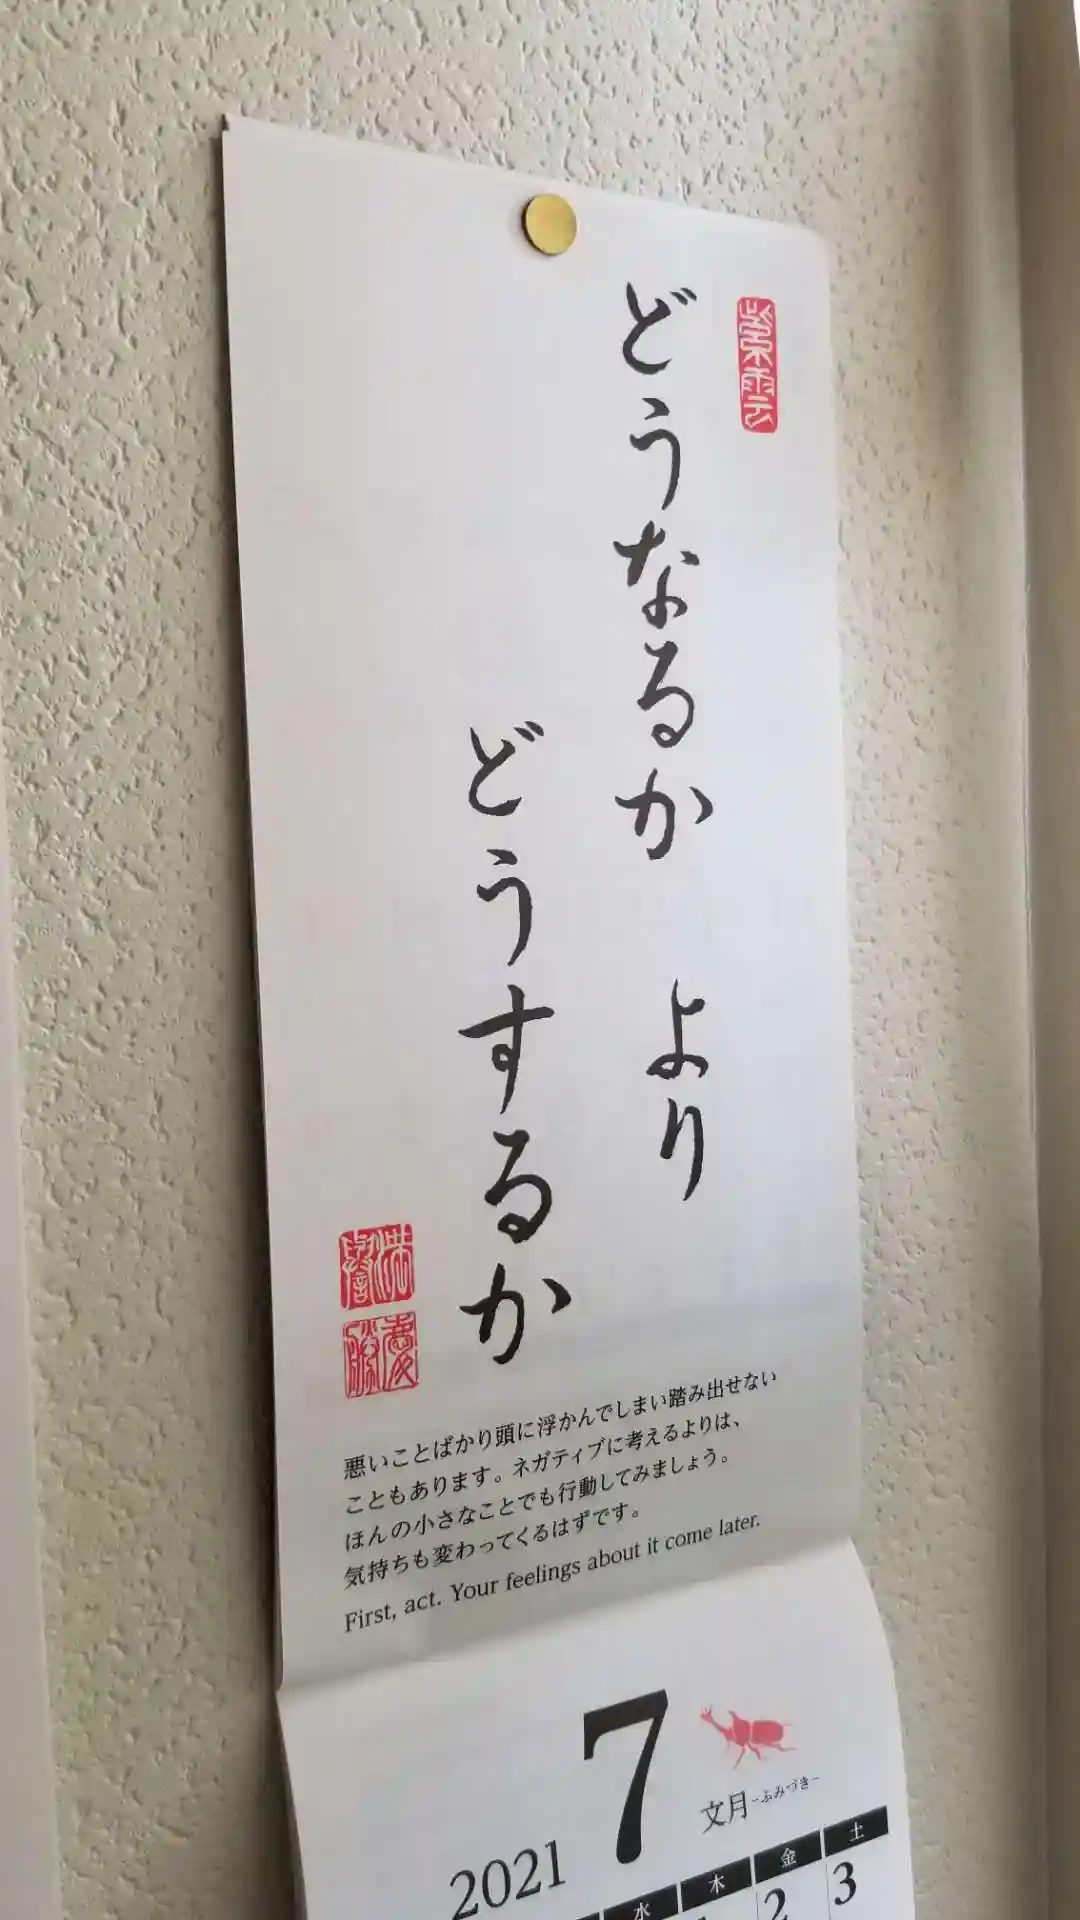 紫雲
どうなるか より
どうするか
悪いことばかり頭に浮かんでしまい踏み出せない
こともあります。ネガティブに考えるよりは、
ほんの小さなことでも行動してみましょう。
気持ちも変わってくるはずです。
First, act. Your feelings about it come later.
7
文月-ふみづき-
2021
水 木 金 土
1 2 3